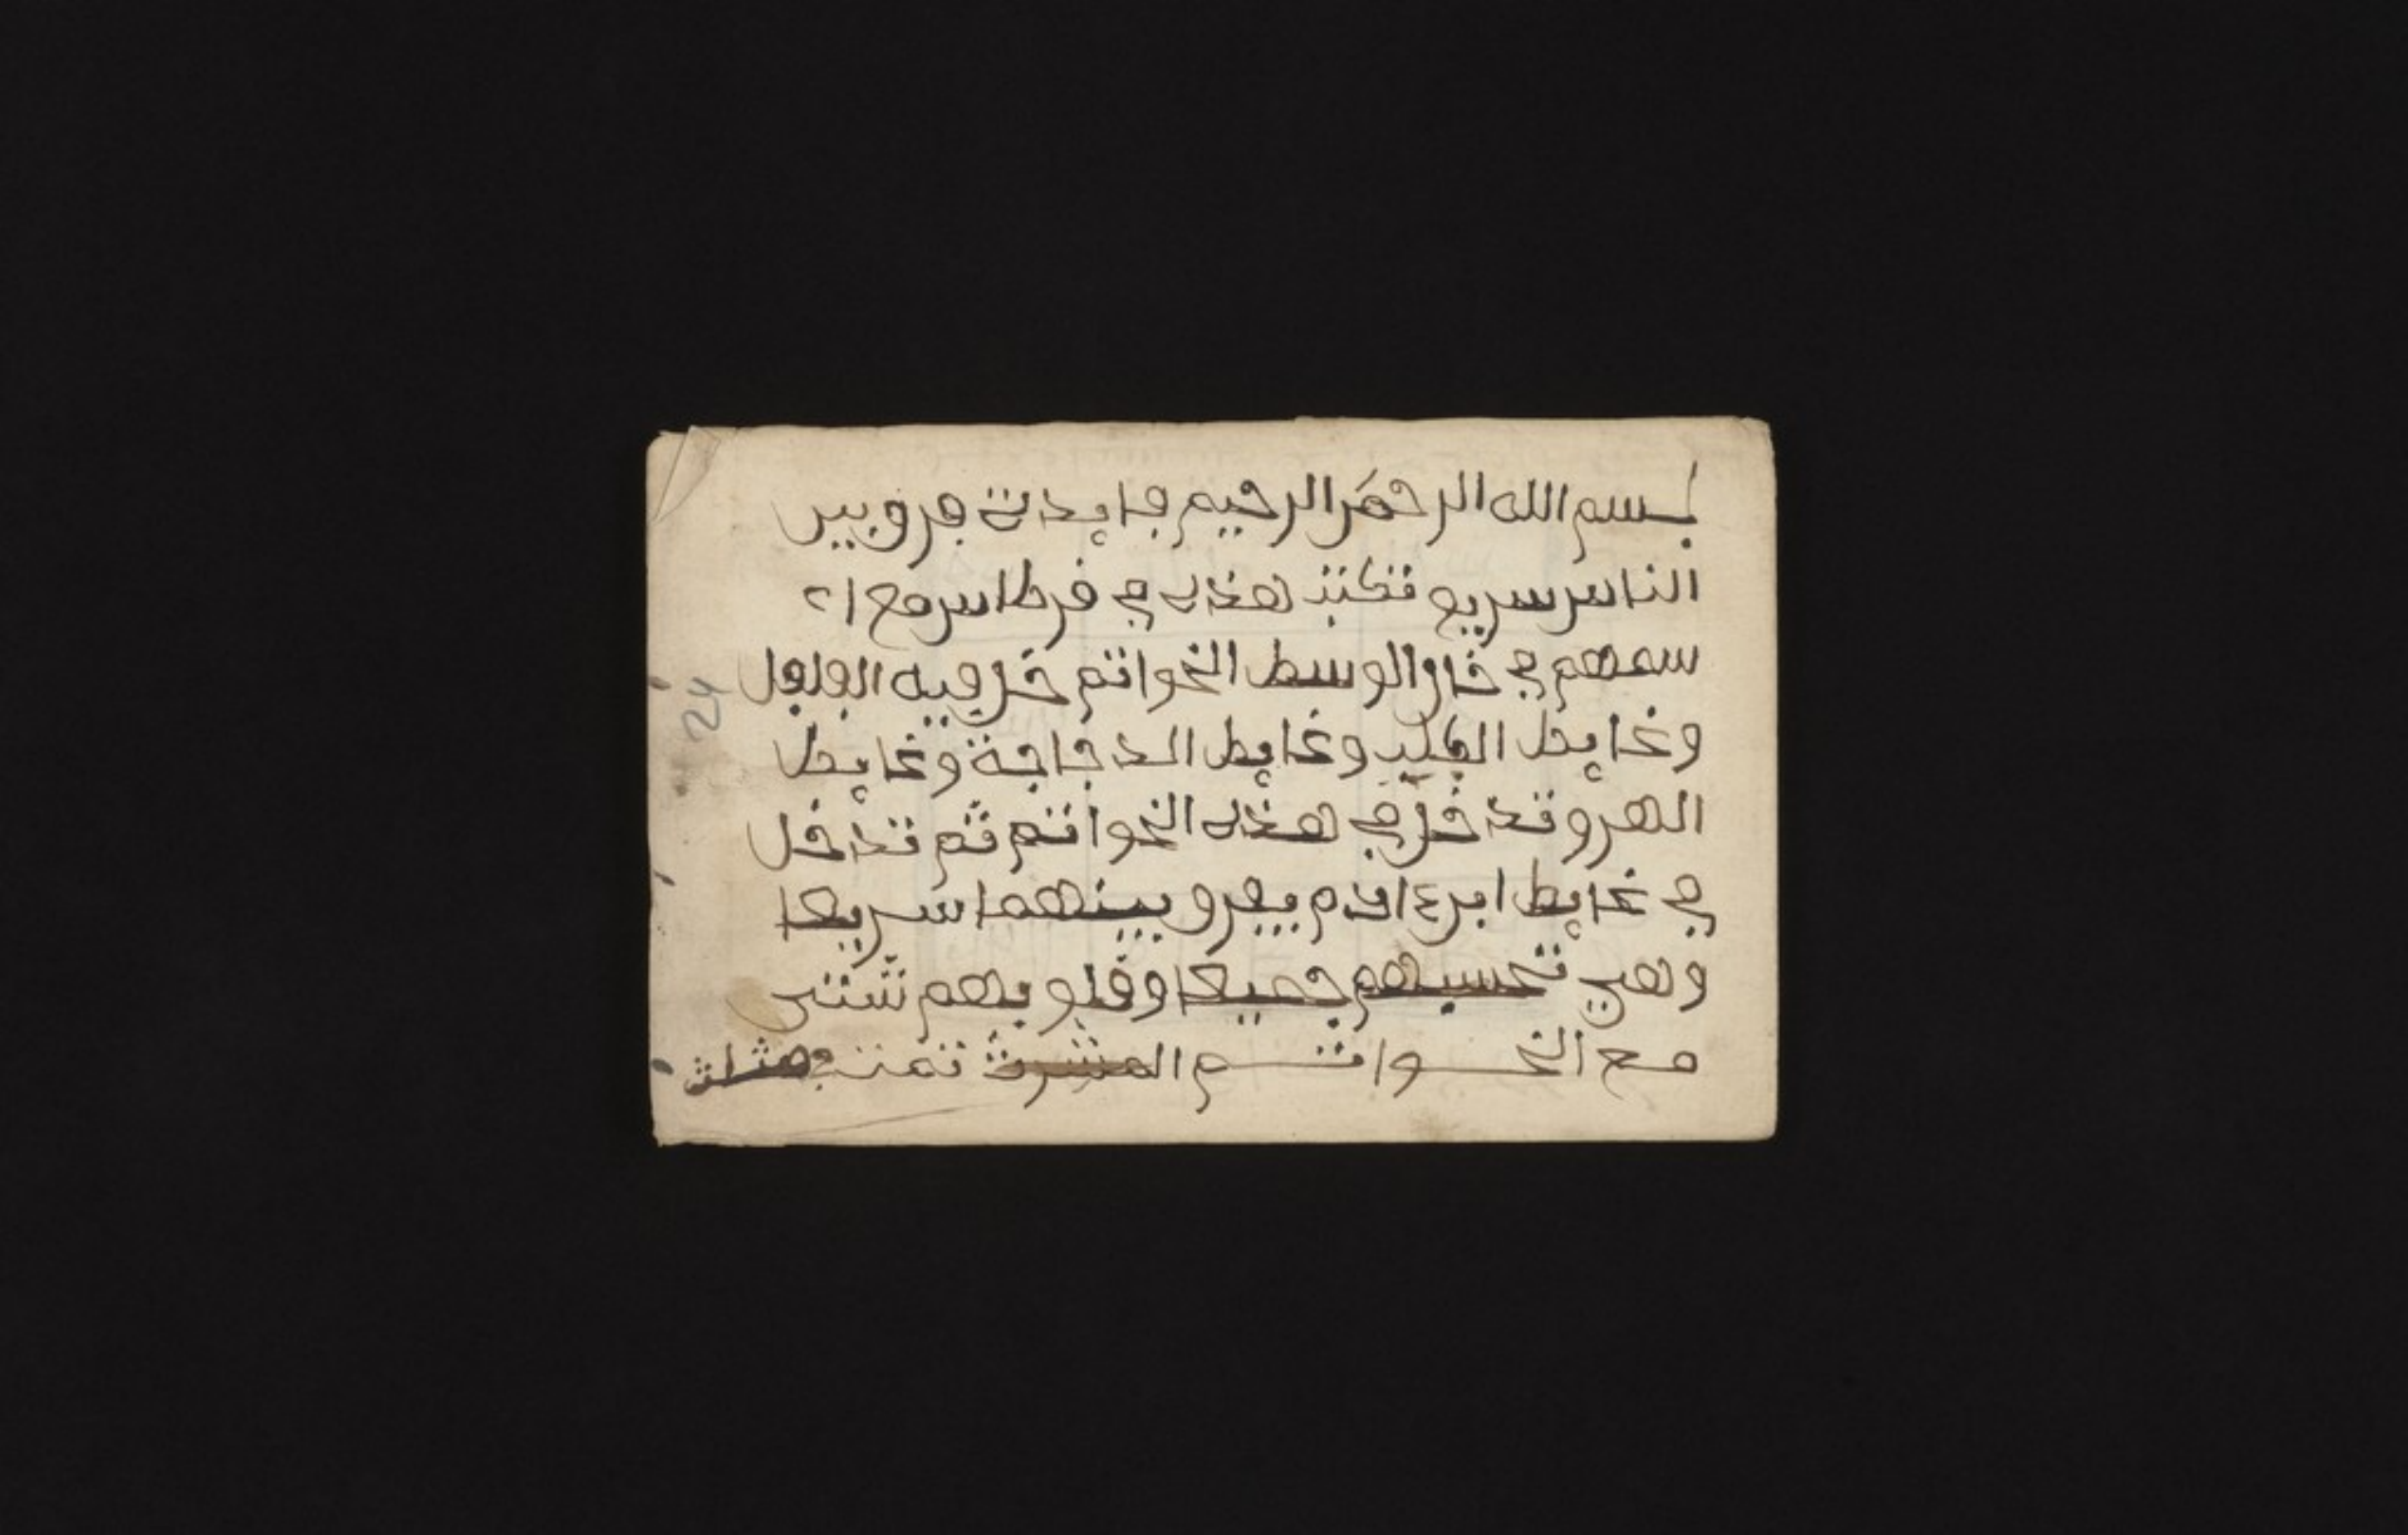 بسم الله الرحمن الرحيم فايدة فروبين
الناس سريع تكتب هذه في قرطاس مع ا
سمهم في خلا الوسط الخواتم خل فيه الفلفل
وغايط الكلب وغايط الدجاجة وغايط
الهر وتدخل في هذه الخواتم ثم تدخل
في غايط ابن ءادم يفرو بينهما سريعا
وهي تحسبهم جميعا وقلوبهم شتى
مع الخواتم
24